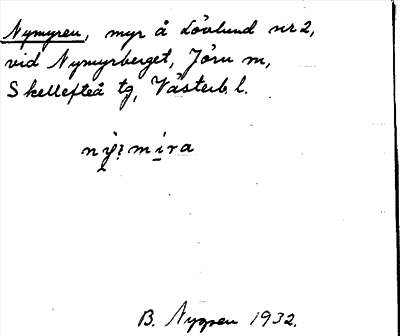 Nymyren, myr å Lövlund nr 2,
vid Nymyrberget, Jörn m,
Skellefteå tg, Västerb. l.
B. Nygren 1932.